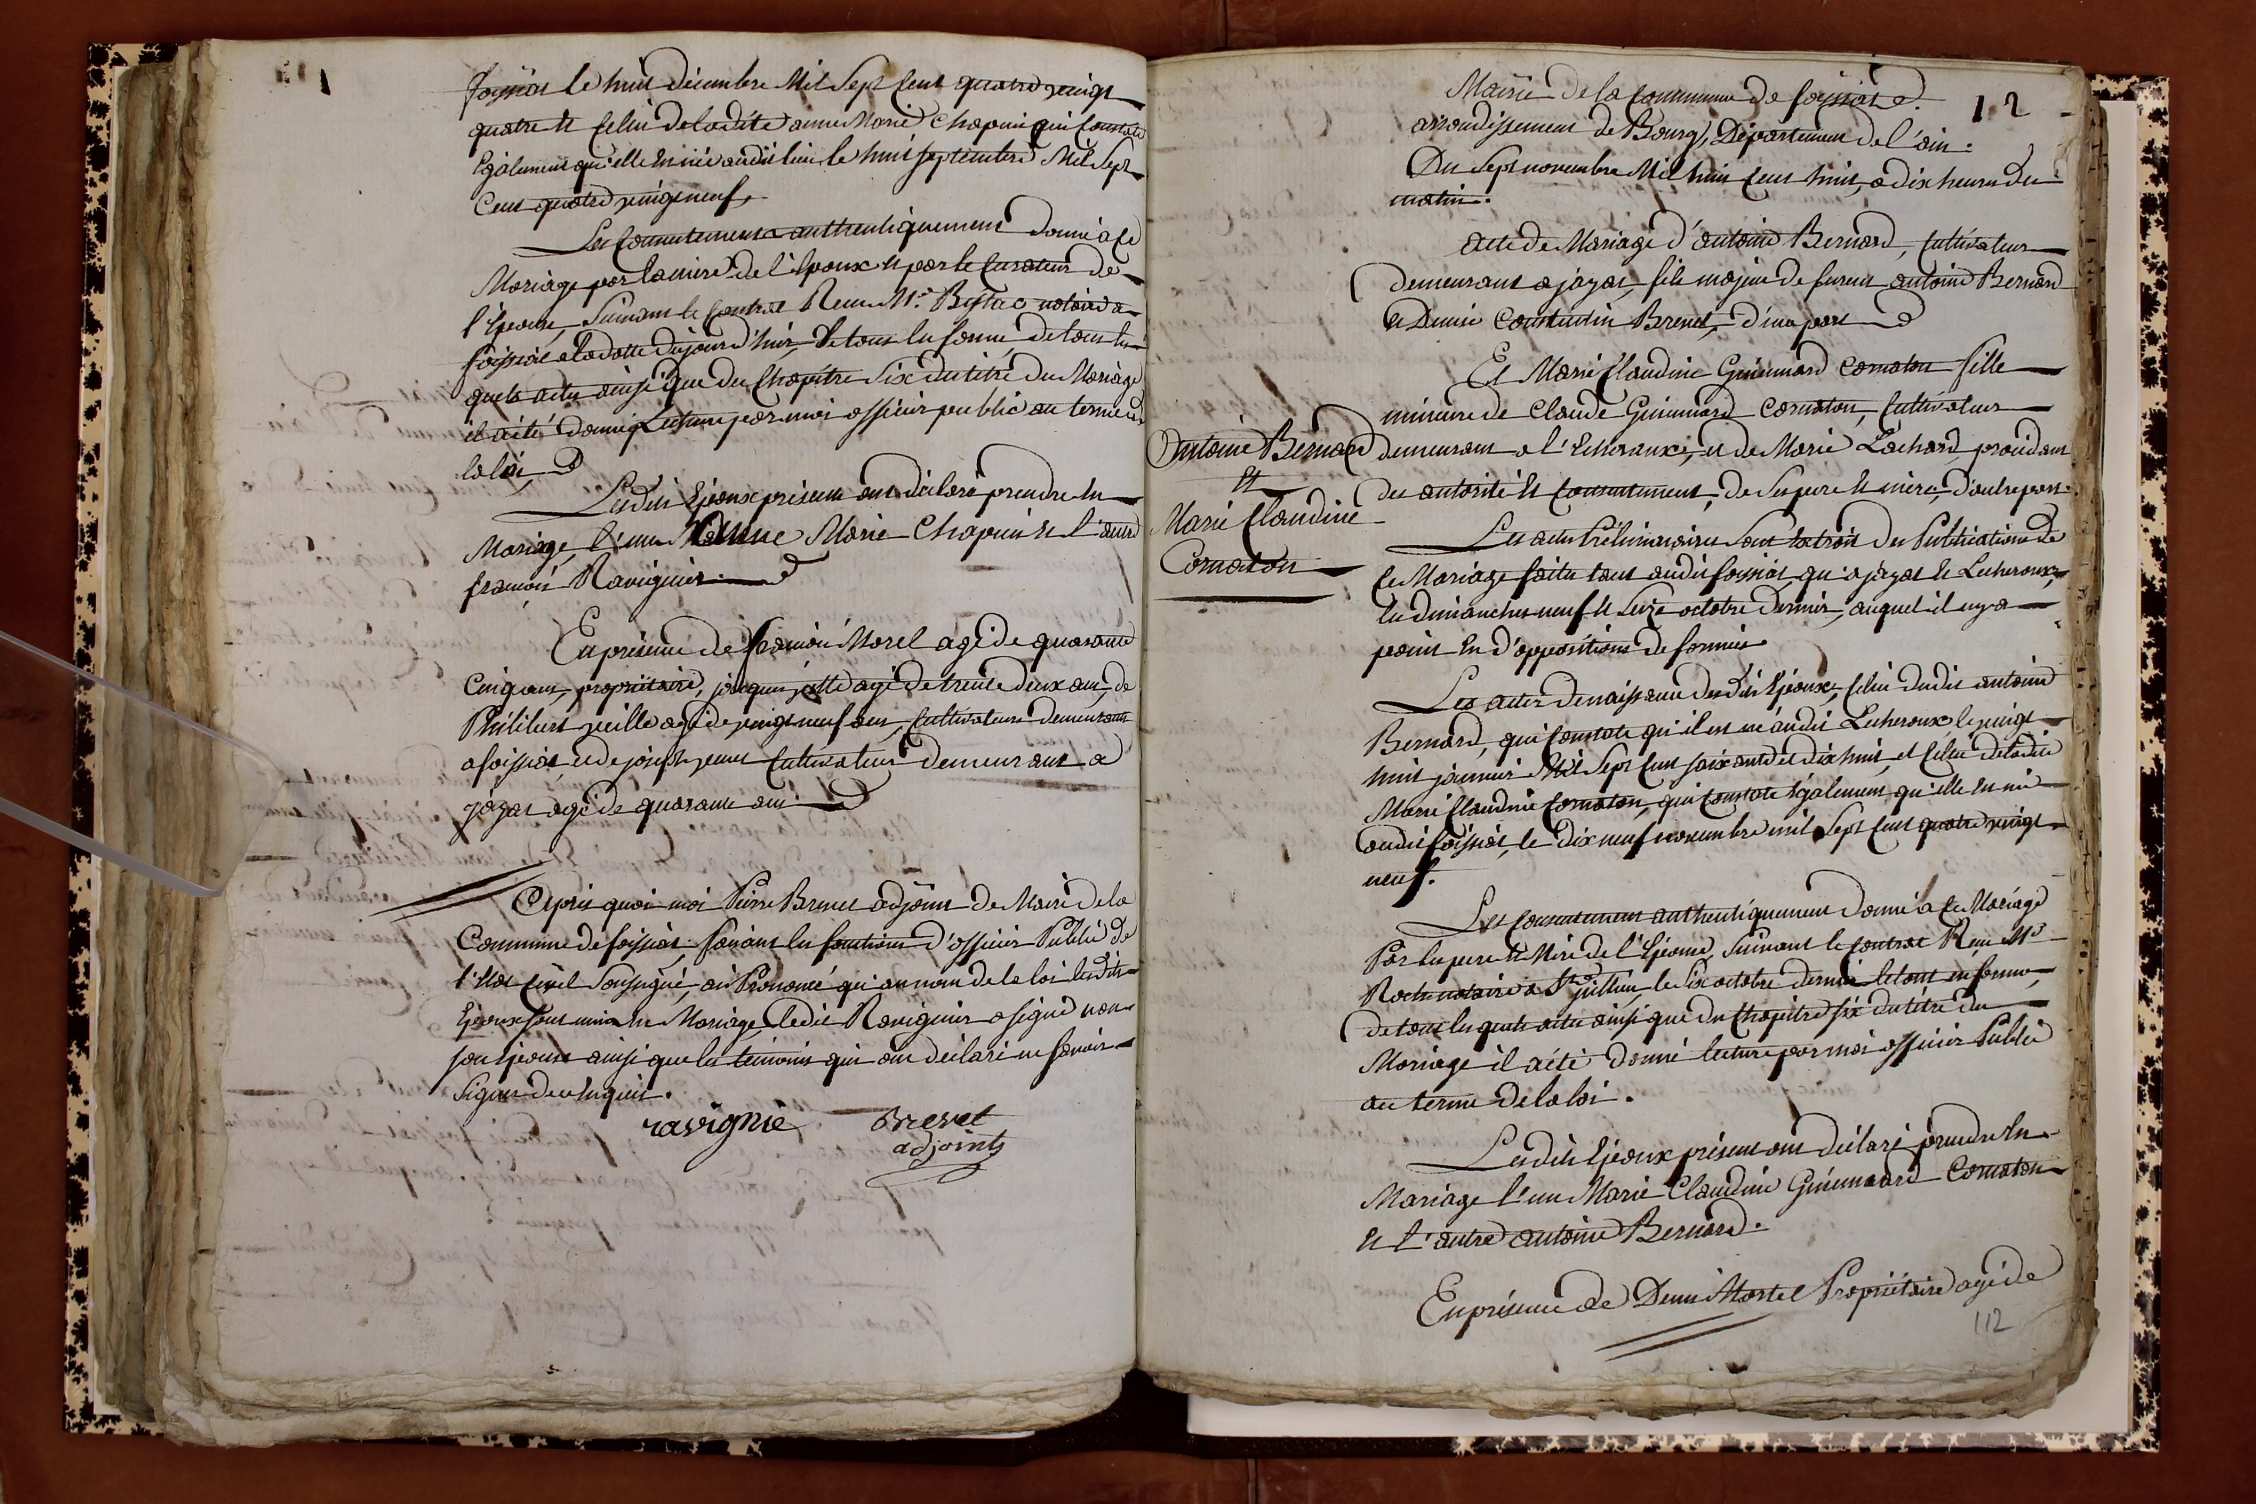 foissiat le huit décembre Mil Sept Cent quatre vingt
quatre et Celui de ladite anne Marie Chapuis qui Constate
Egalement qu'elle Est née audit lieu le huit septembre Mil Sept
Cent quatre vingt neuf.
Les Consentements authentiquement donné a ce
Mariage par la mere de l'Epoux et par le Curateur de
l'Epouse, Suivant le Contrat Recu Me notaire a
foissiat a la datte du jourd'hui, le tout En forme, de tous les
quels actes ainsi que du Chapitre Six du titre du Mariage
il a été donné Lecture par moi officier public au terme de
la loi,
Lesdits Epoux présens ont déclaré prendre En
Mariage, l'un anne Marie Chapuis et l'autre
françois Raviguier.
En présence de françois Morel agé de quarante
Cinq ans, propriétaire, agé de trente deux ans, de
Philibert agé de vingt neuf ans, Cultivateurs demeurant
a foissiat, et de joseph Cultivateur demeurant a
jayat agé de quarante ans
Après quoi moi Pierre Brevet adjoint de Maire de la
Commune de foissiat, faisant les fonctions d'officier Public de
l'Etat Civil Soussigné, ai Prononcé qu'au nom de la loi lesdits
Epoux sont unis En Mariage, ledit Raviguier a signé non
son Epouse ainsi que les témoins qui ont déclaré ne savoir
signer de ce Enquis.
ravignie Brevet
adjoint
12
Mairie de la Commune de foissiat
arrondissement de Bourg, Département de l'ain.
Du Sept novembre Mil huit Cent huit, a dix heures du
matin.
acte de Mariage d'antoine Bernard, Cultivateur
demeurant a jayat, fils majeur de furent antoine Bernard
et Denise Constantin Brevet, d'une part
Et Marie Claudine Guionnard Cornaton fille
mineure de Claude Guionnard Cornaton, Cultivateur
Antoine Bernard
Et
Marie Claudine
Cornaton
demeurant a l'Echeroux, et de Marie Lachard, procédant
des autorité et Consentement, de Ses pere et mere, d'autre part.
Les actes Préliminaires Sont Extrait des Publications de
ce Mariage faites tant audit foissiat qu'a jayat et Lecheroux,
les dimanches neuf et Seize octobre dernier, auquel il ny a
point Eu d'oppositions de formées
Les actes de naissance desdits Epoux, Celui dudit antoine
Bernard, qui Constate qu'il est né audit Lecheroux, le vingt
huit janvier Mil Sept Cent soixante et dix huit, et Celui de ladite
Marie Claudine Cornaton, qui Constate Egalement, qu'elle Est née
audit foissiat, le dix neuf novembre mil Sept Cent quatre vingt
neuf.
Les Consentement authentiquement donné a ce Mariage
Par les pere et Mere de l'Epouse, Suivant le Contrat Recu Me
Roch notaire a St jullien, le Six octobre dernier le tout en forme,
de tous lesquels actes ainsi que du Chapitre six du titre du
Mariage il a été donné lecture par moi officier Public
au terme de la loi.
Lesdits Epoux présens ont déclaré prendre En
Mariage l'un Marie Claudine Guionnard Cornaton
et l'autre antoine Bernard.
En présence de Denis Propriétaire agé de
112